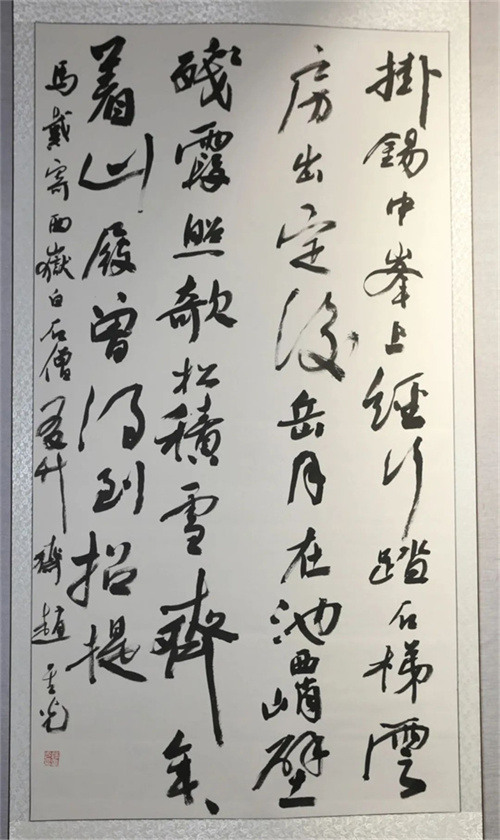 掛錫中峯上經行踏石梯雲
房出定後岳月在池西峭壁
殘霞照欹松積雪齊年、
着山屐曾得到招提
馬戴寄西嶽白石僧 齋趙光